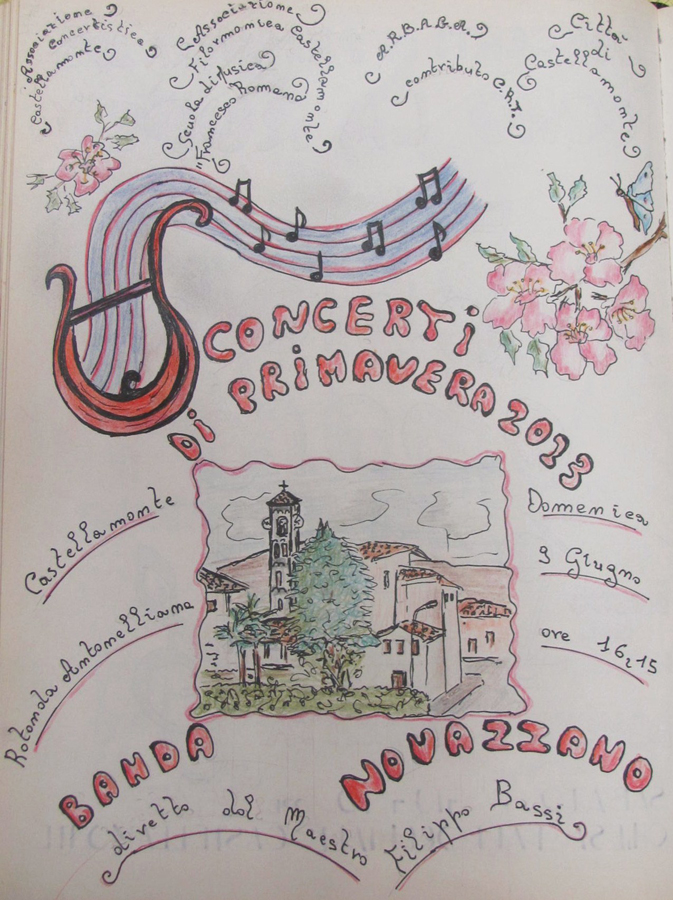 Associazione
Concertistica
Castellamonte
Associazione
Filarmonica Castellamonte
Scuola di Musica
"Francesco Romana"
A.R.B.A.G.A.
contributo C.R.T.
Città
di
Castellamonte
CONCERTI
DI PRIMAVERA 2013
Castellamonte
Rotonda Antonelliana
Domenica
9 Giugno
ore 16,15
BANDA NOVAZZANO
diretto dal Maestro Filippo Bassi